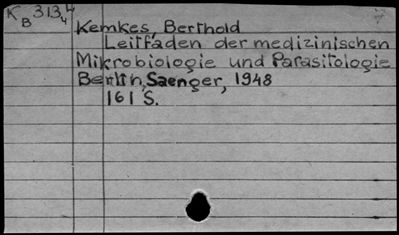 K B 313,4 4
Kemkes, Berthold
Leitfaden der medizinischen
Mikrobiologie und Parasitologie
Berlin, Saenger, 1948
161 S.